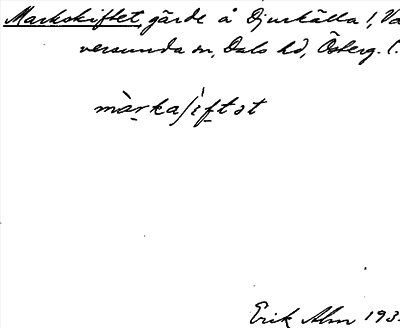 Markskiftet, gärde å Djurkälla 1, Va
versunda sn, Dals hd, Österg. l.
màrkaʃìftət
Erik Alm 193